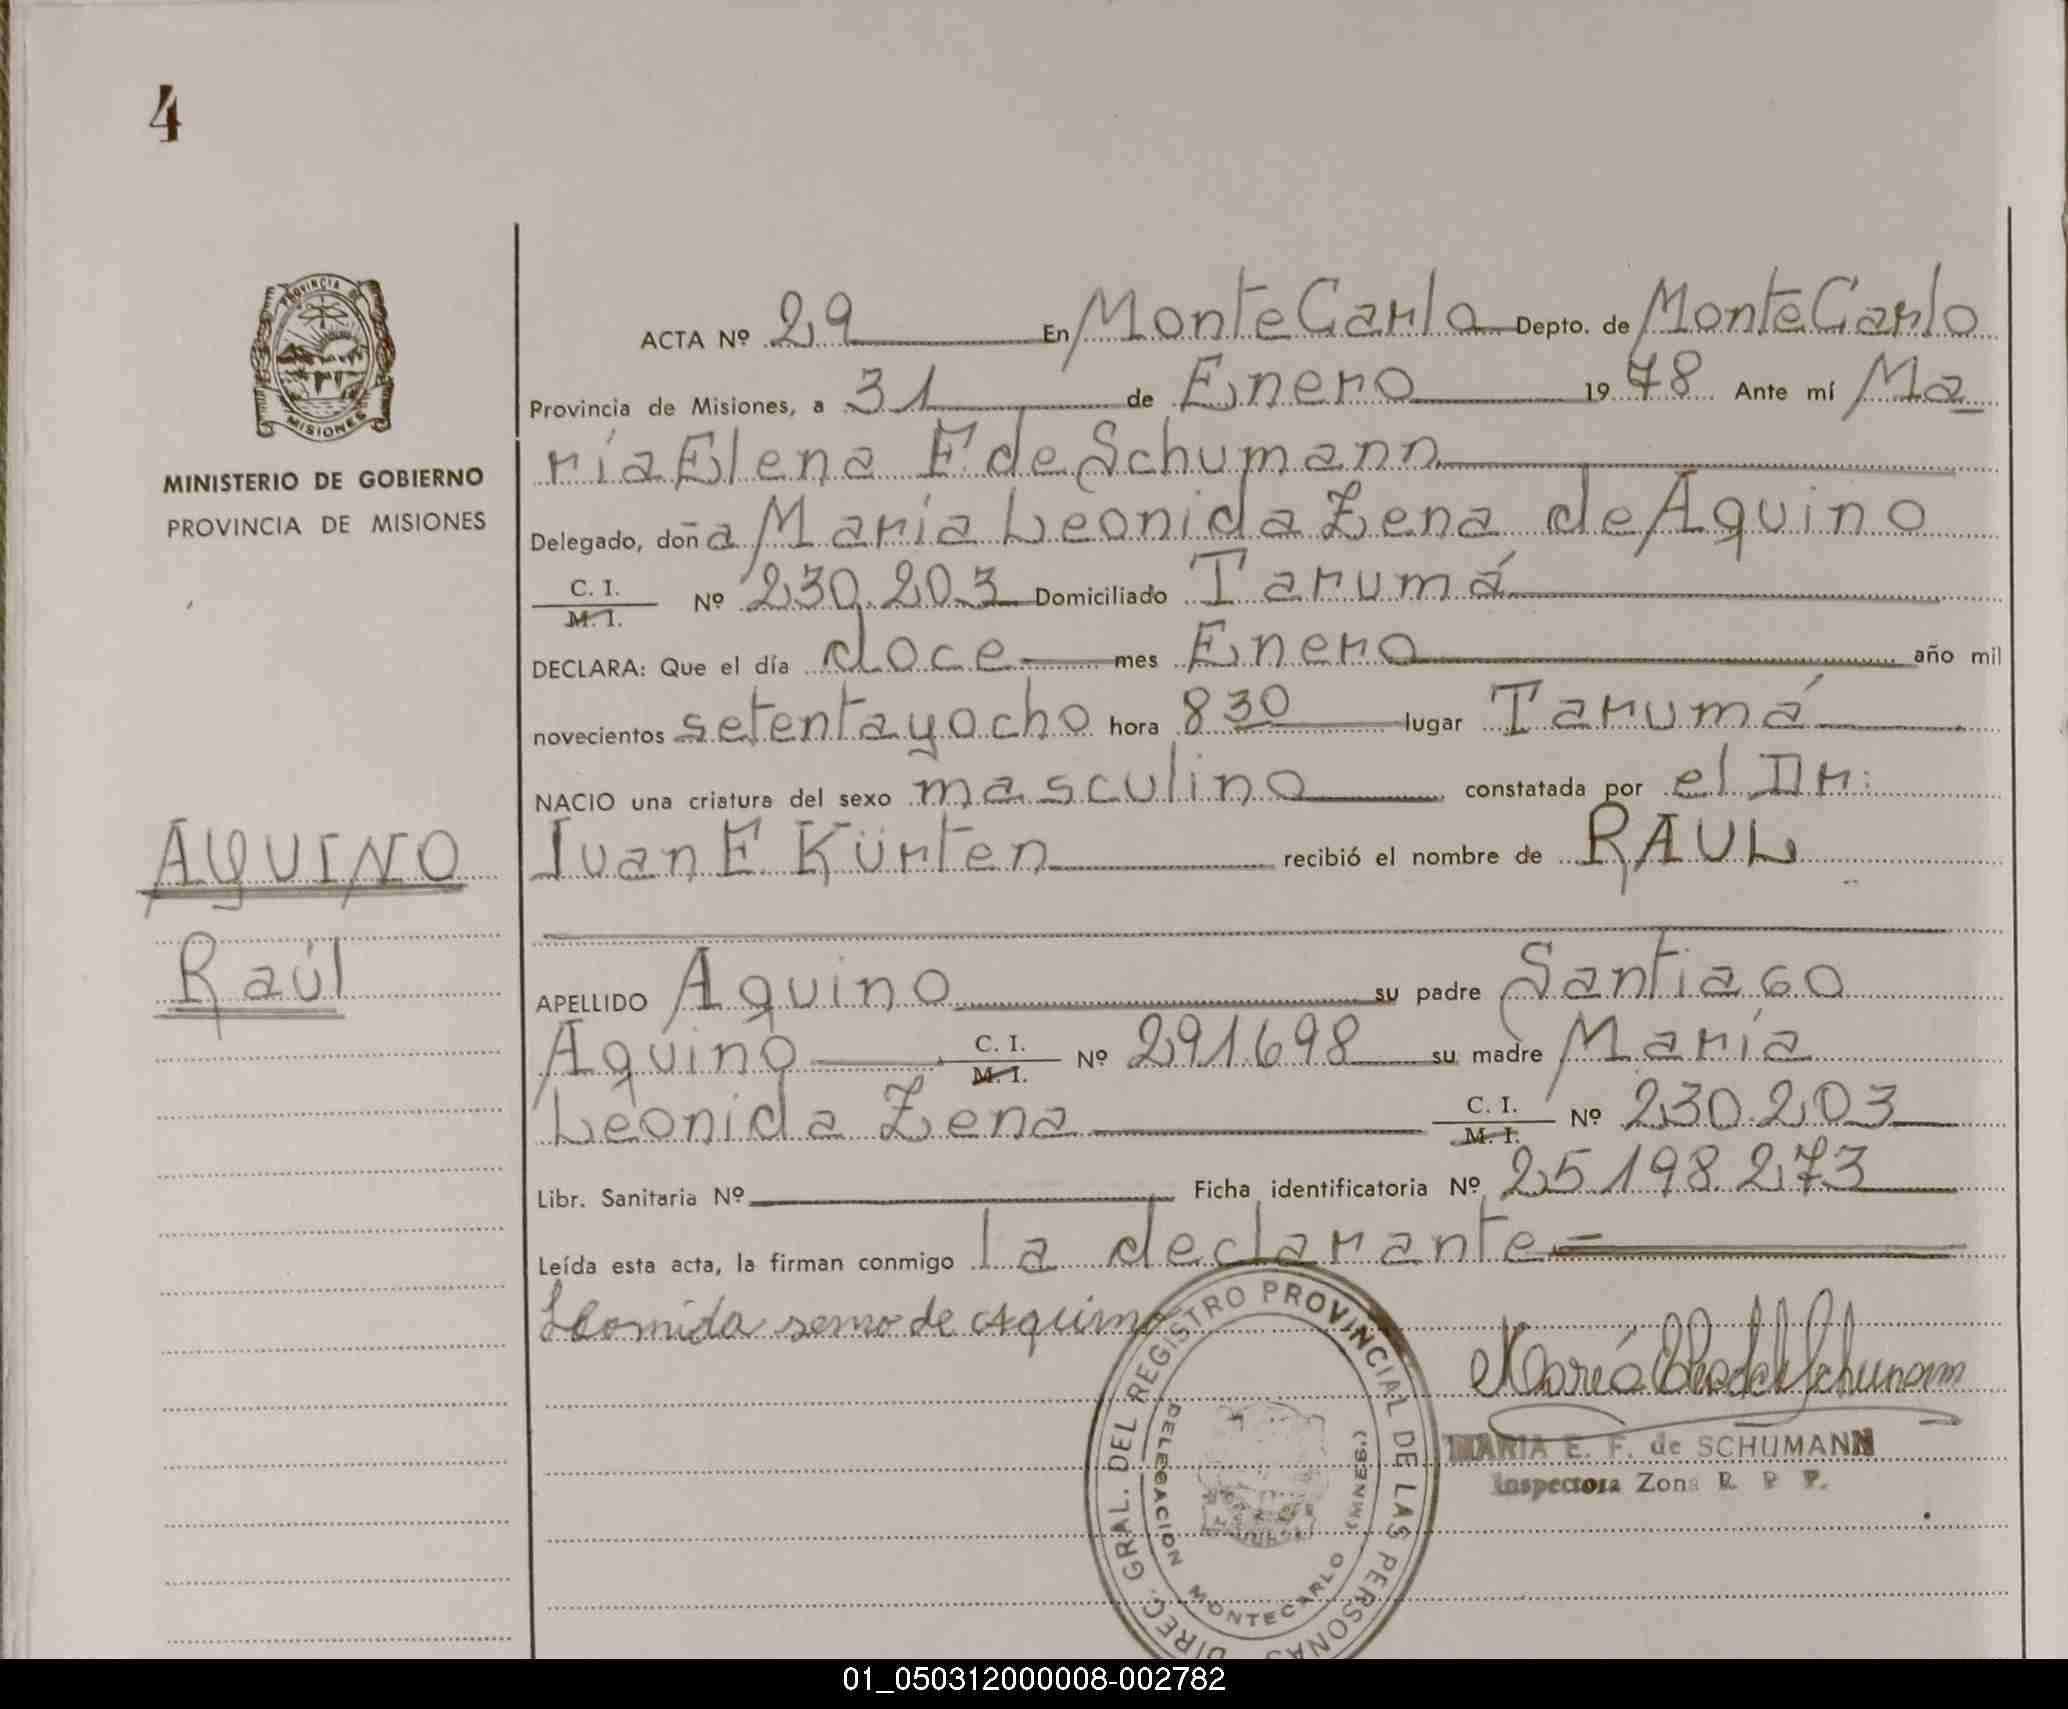 4
PROVINCIA DE
MISIONES
MINISTERIO DE GOBIERNO
PROVINCIA DE MISIONES
AQUINO
Raúl
ACTA Nº 29 En MonteCarlo Depto. de MonteCarlo
Provincia de Misiones, a 31 de Enero 1978 Ante mí Ma
ría Elena F de Schumann
Delegado, doña María Leonida Zena de Aquino
C. I.
M. I. Nº 230.203 Domiciliado Tarumá
DECLARA: Que el día doce mes Enero año mil
novecientos setenta y ocho hora 8 30 lugar Tarumá
NACIO una criatura del sexo masculino constatada por el Dr:
Ivan E Kürten recibió el nombre de RAUL
APELLIDO Aquino su padre Santiago
Aquino C. I. M. I. Nº 291.698 su madre María
Leonida Zena C. I. M. I. Nº 230.203
Libr. Sanitaria Nº Ficha identificatoria Nº 25.198.273
Leída esta acta, la firman conmigo la declarante=
Leonida seno de Aquino
DIREC. GRAL. DEL REGISTRO PROVINCIAL DE LAS PERSONAS
DELEGACION MONTECARLO (MNES.)
MARIA E. F. de SCHUMANN
Inspectora Zona R P P.
01_050312000008-002782